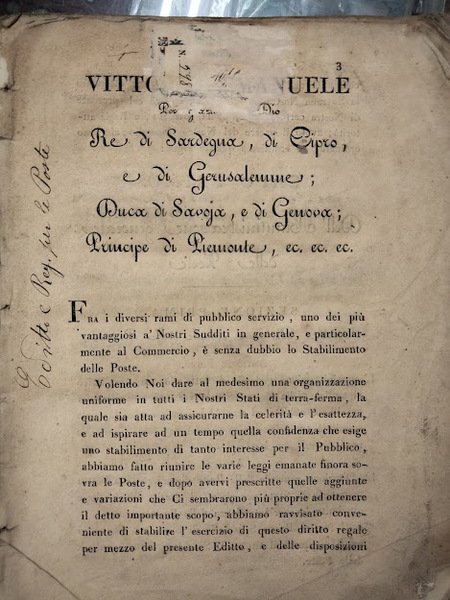 3
VITTO MANUELE
Per gra Dio
Re di Sardegna, di Cipro,
e di Gerusalemme;
Duca di Savoja, e di Genova;
Principe di Piemonte, ec. ec. ec.
FRA i diversi rami di pubblico servizio, uno dei più
vantaggiosi a' Nostri Sudditi in generale, e particolar-
mente al Commercio, è senza dubbio lo Stabilimento
delle Poste.
Volendo Noi dare al medesimo una organizzazione
uniforme in tutti i Nostri Stati di terra-ferma, la
quale sia atta ad assicurarne la celerità e l'esattezza,
e ad ispirare ad un tempo quella confidenza che esige
uno stabilimento di tanto interesse per il Pubblico,
abbiamo fatto riunire le varie leggi emanate finora so-
vra le Poste, e dopo avervi prescritte quelle aggiunte
e variazioni che Ci sembrarono più proprie ad ottenere
il detto importante scopo, abbiamo ravvisato conve-
niente di stabilire l'esercizio di questo diritto regale
per mezzo del presente Editto, e delle disposizioni
Editti e Reg. per le Poste